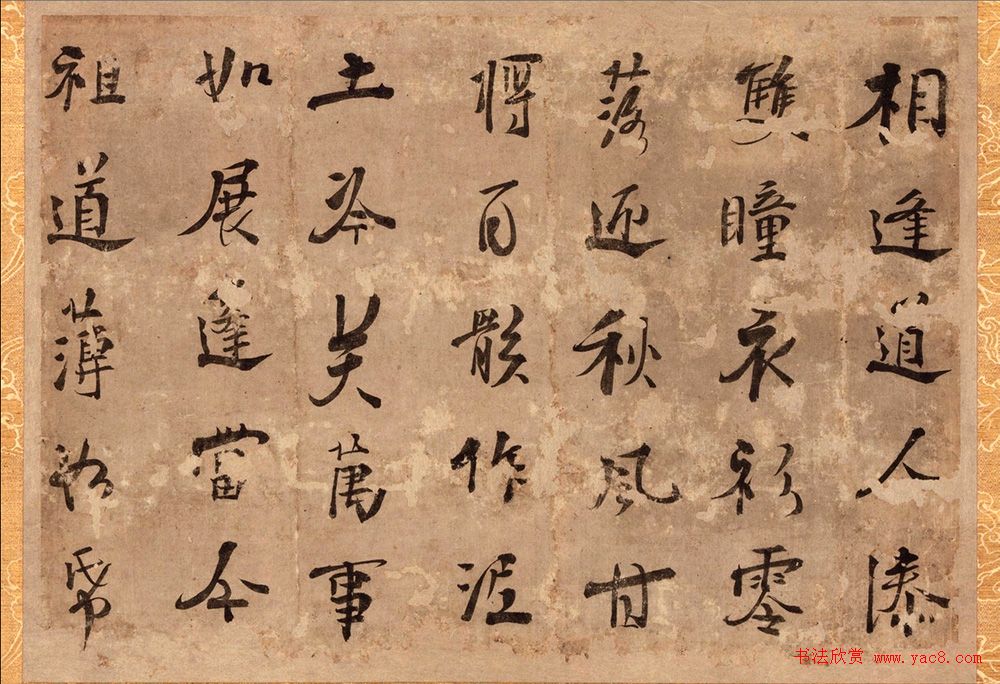 相逢道人漆
雙瞳衣衫零
落迎秋風甘
將百骸作泥
土冷笑萬事
如展蓬當今
祖道薄於帋
书法欣赏 www.yac8.com